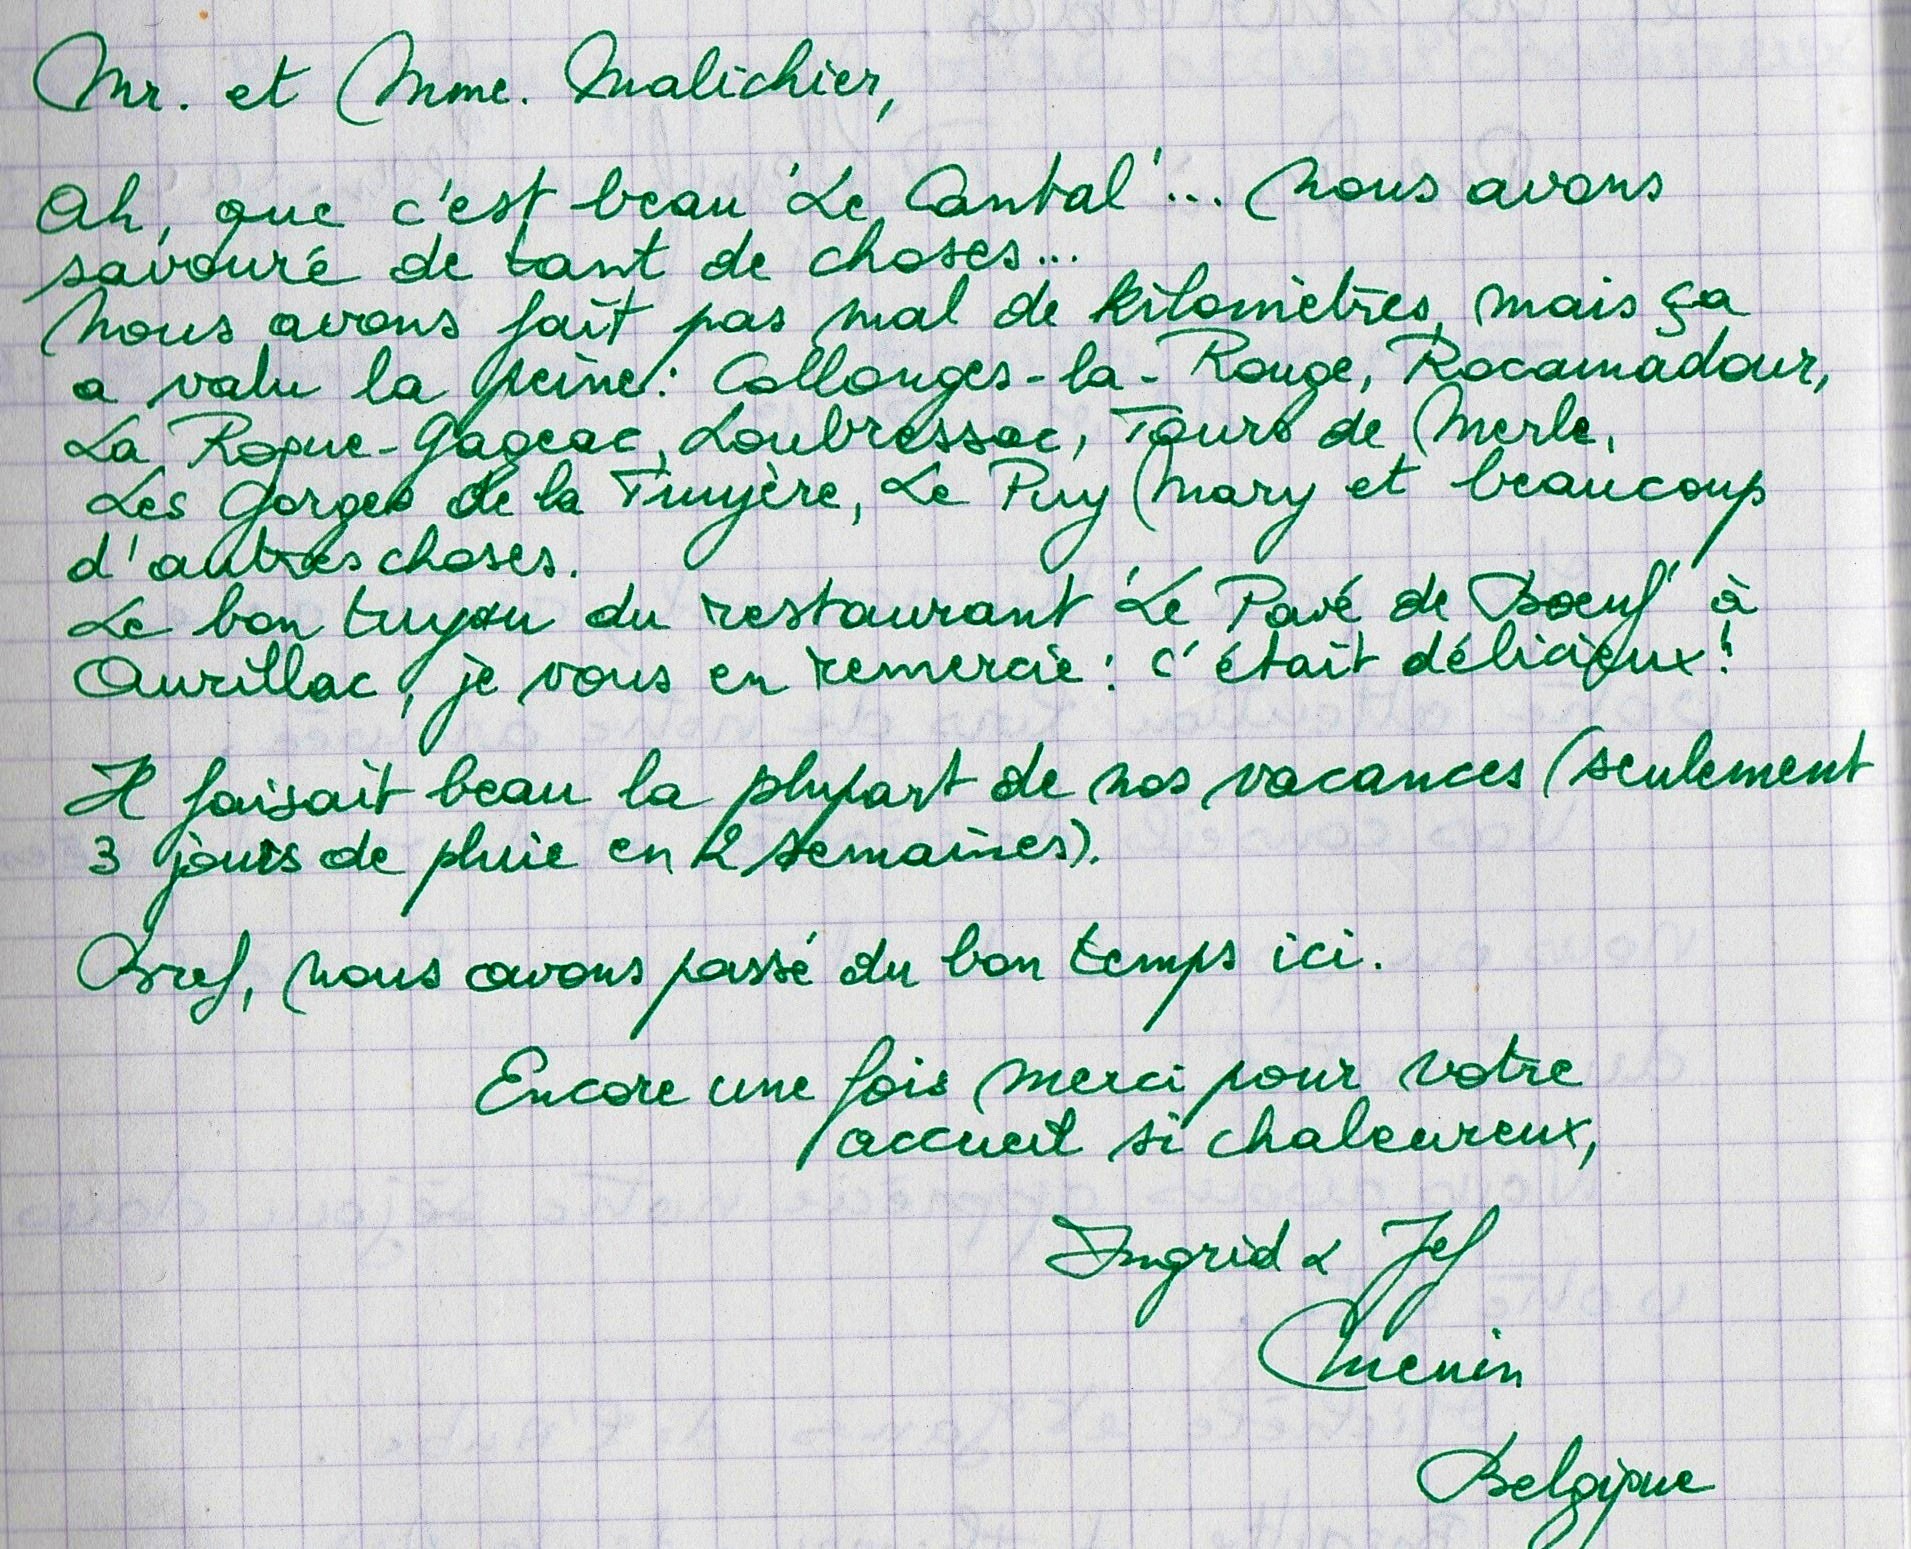 Mr. et Mme. Malichier,
Ah, que c'est beau 'Le Cantal'... Nous avons
savouré de tant de choses...
Nous avons fait pas mal de kilomètres, mais ça
a valu la peine: Collonges-la-Rouge, Rocamadour,
La Roque-Gageac, Loubressac, Tours de Merle,
Les Gorges de la Truyère, Le Puy Mary et beaucoup
d'autres choses.
Le bon tuyau du restaurant 'Le Pavé de Boeuf' à
Aurillac, je vous en remercie: c'était délicieux!
Il faisait beau la plupart de nos vacances (seulement
3 jours de pluie en 2 semaines).
Bref, nous avons passé du bon temps ici.
Encore une fois merci pour votre
accueil si chaleureux,
Ingrid & Jef
Belgique